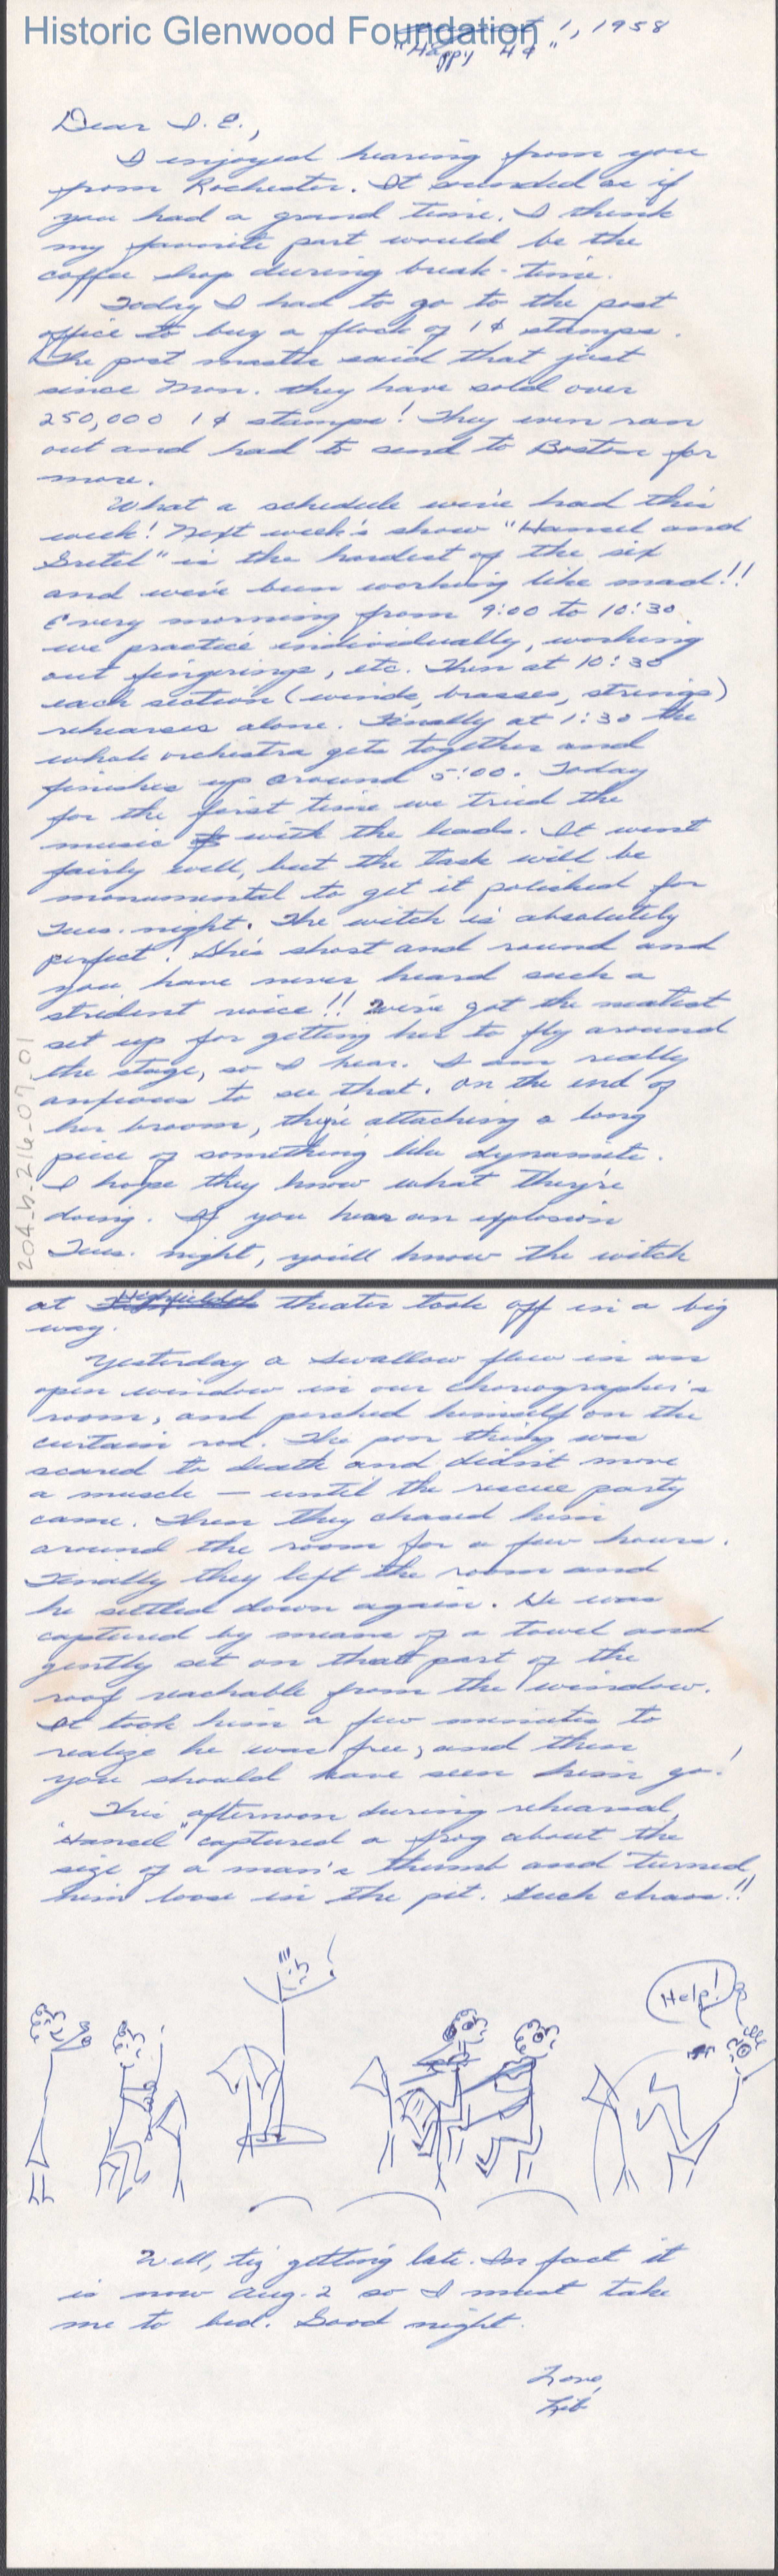 Historic Glenwood Foundation
August 1, 1958
"Happy 4¢"
Dear I. E.,
I enjoyed hearing from you
from Rochester. It sounded as if
you had a grand time. I think
my favorite part would be the
coffee shop during break-time.
Today I had to go to the post
office to buy a flock of 1¢ stamps.
The post master said that just
since Mon. they have sold over
250,000 1¢ stamps! They even ran
out and had to send to Boston for
more.
What a schedule we've had this
week! Next week's show "Hansel and
Gretel" is the hardest of the six
and we've been working like mad!!
Every morning from 9:00 to 10:30
we practice individually, working
out fingerings, etc. Then at 10:30
each section (winds, brasses, strings)
rehearses alone. Finally at 1:30 the
whole orchestra gets together and
finishes up around 5:00. Today
for the first time we tried the
music with the leads. It went
fairly well, but the task will be
monumental to get it polished for
Tues. night. The witch is absolutely
perfect! She's short and round and
you have never heard such a
strident voice!! We've got the neatest
set up for getting her to fly around
the stage, so I hear. I am really
anxious to see that. On the end of
her broom, they're attaching a long
piece of something like dynamite.
I hope they know what they're
doing. If you hear an explosion
Tues. night, you'll know the witch
204-b-216-07.01
at Highfield theater took off in a big
way.
Yesterday a swallow flew in an
open window in our choreographer's
room, and perched himself on the
curtain rod. The poor thing was
scared to death and didn't move
a muscle — until the rescue party
came. Then they chased him
around the room for a few hours.
Finally they left the room and
he settled down again. He was
captured by means of a towel and
gently set on that part of the
roof reachable from the window.
It took him a few minutes to
realize he was free, and then
you should have seen him go!
This afternoon during rehearsal,
"Hansel" captured a frog about the
size of a man's thumb and turned
him loose in the pit. Such chaos!!
Help!
Well, tis getting late. In fact it
is now Aug. 2 so I must take
me to bed. Good night.
Love,
Lib